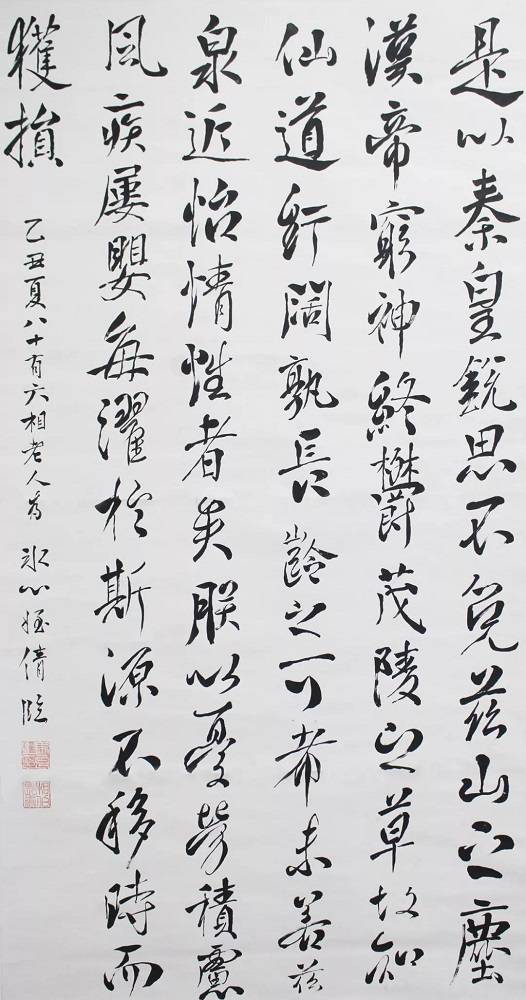 是以秦皇銳思不免茲山之塵
漢帝窮神終欝茂陵之草故知
仙道紆闊孰長齡之可希未若茲
泉近怡情性者矣朕以憂勞積慮
風疾屢嬰每濯於斯源不移時而
獲損
乙丑夏八十有六相老人為 冰心姪倩臨